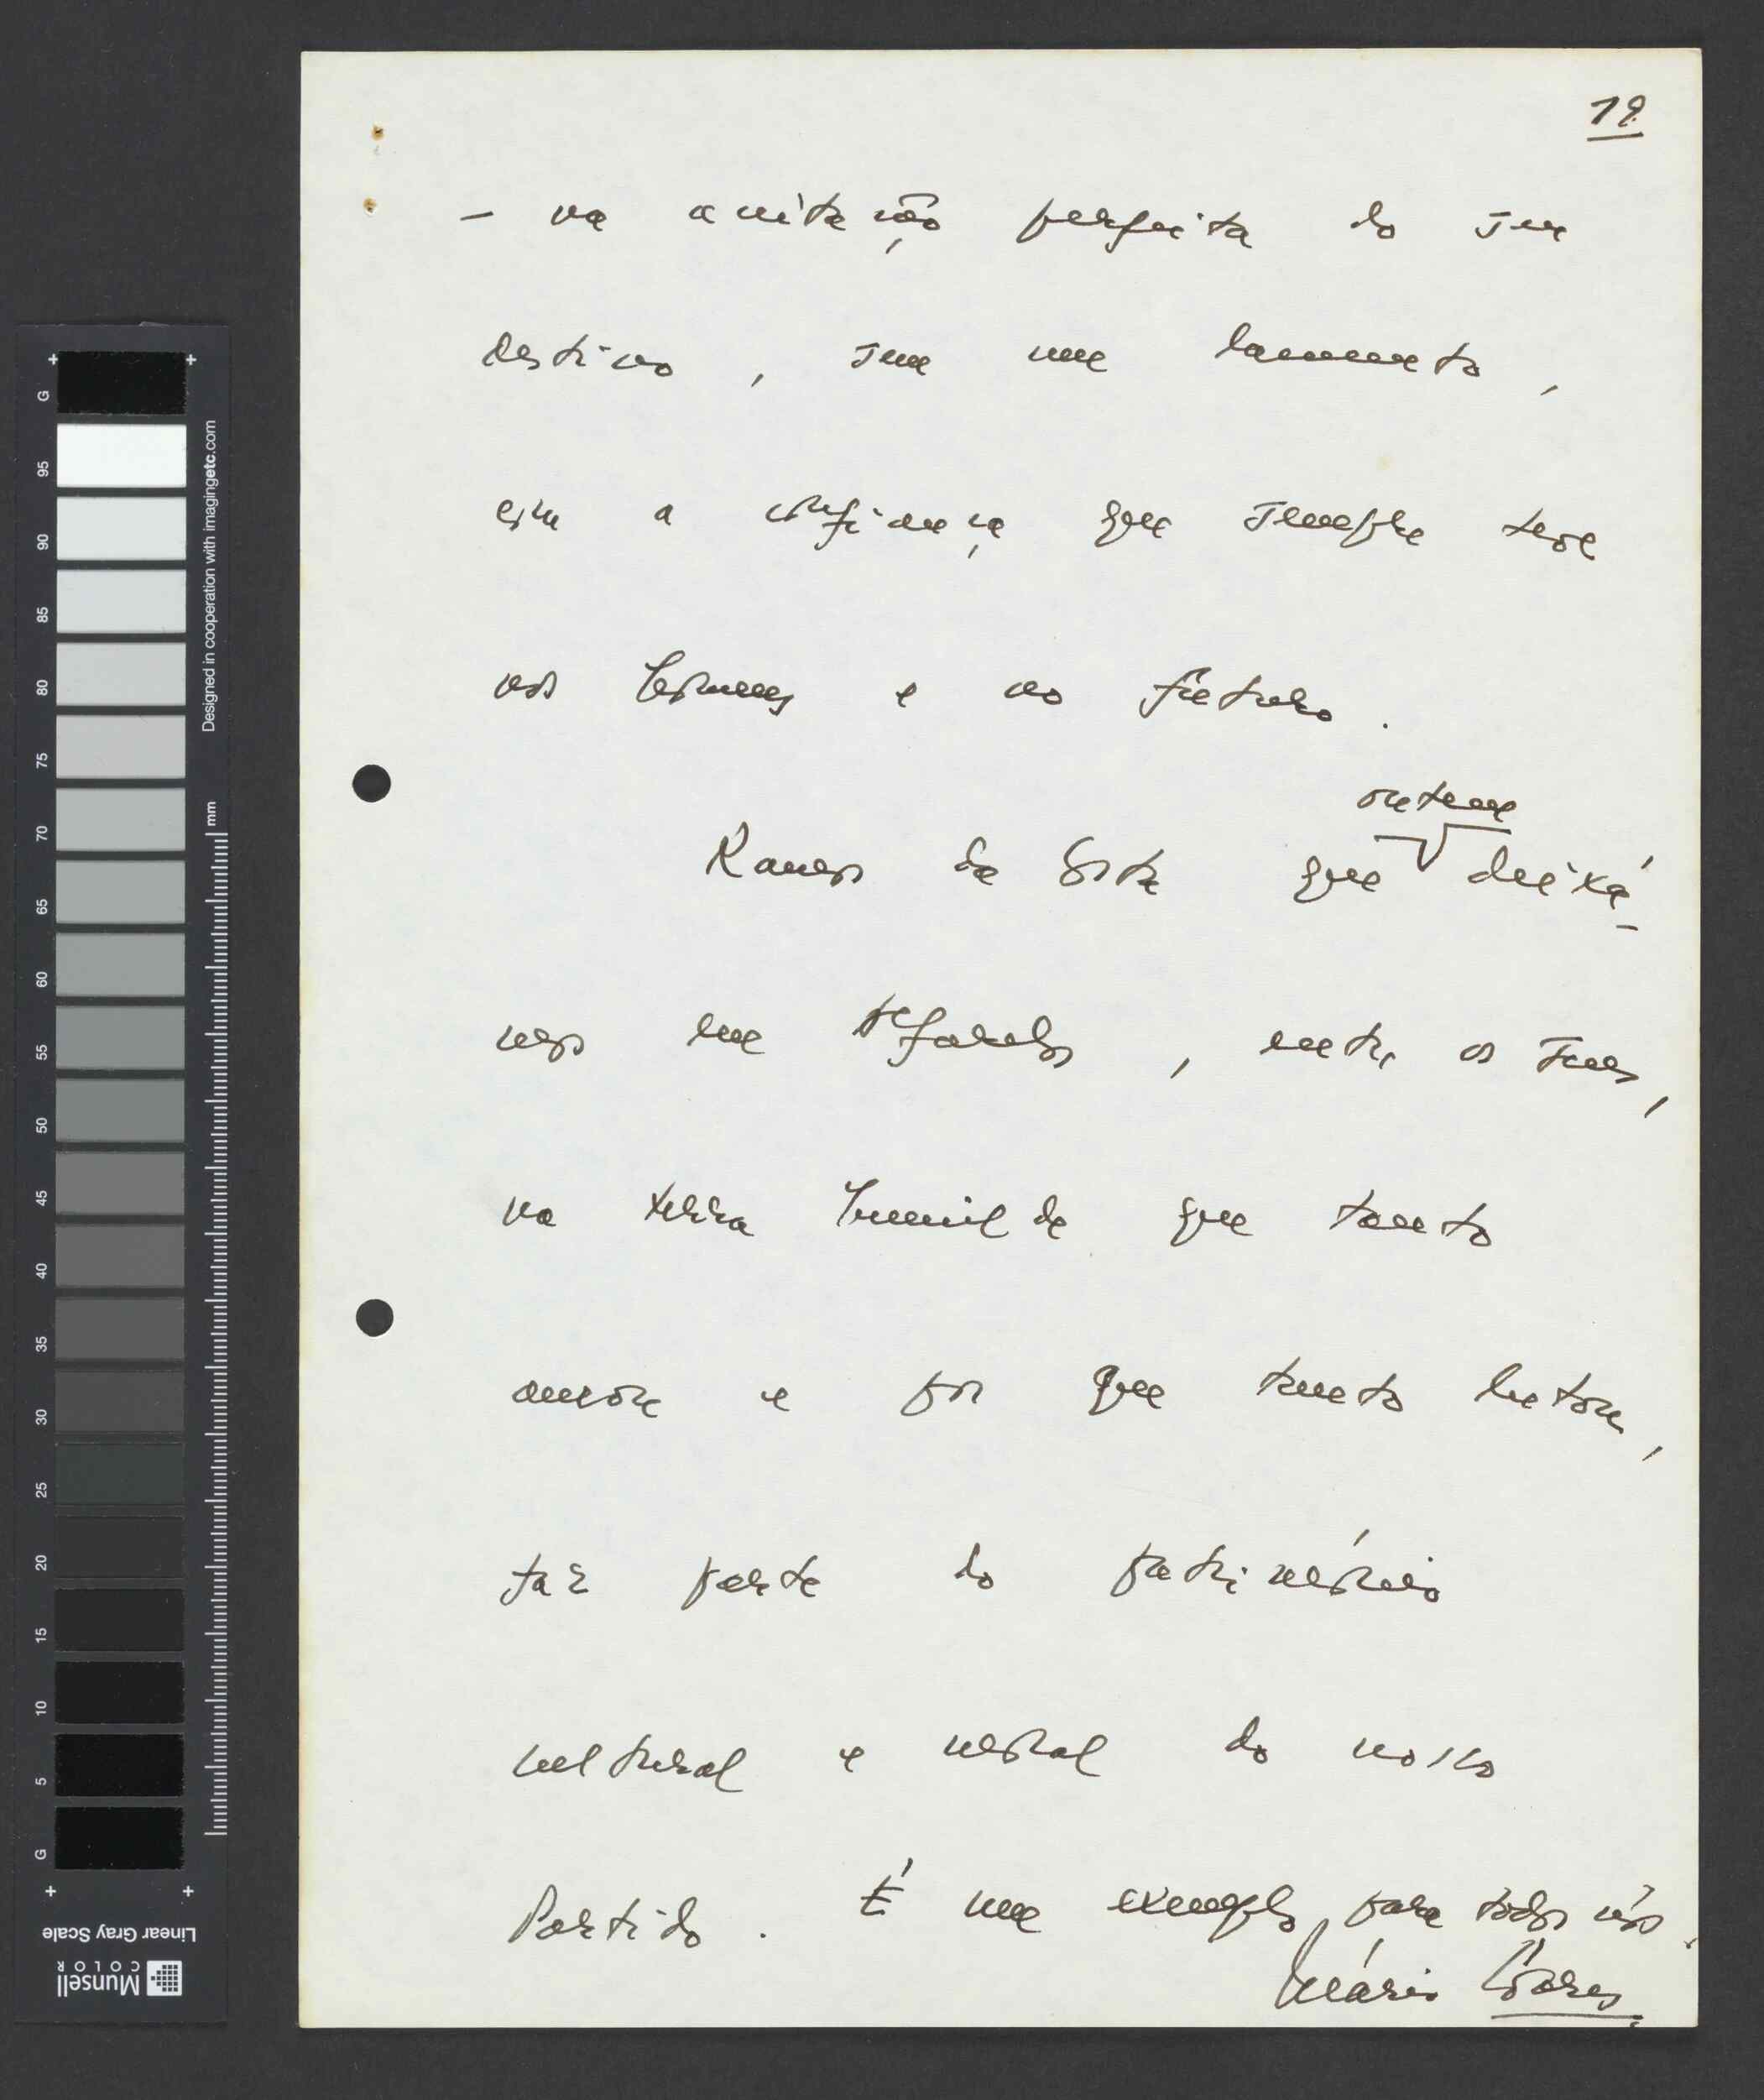 19.
– na aceitação perfeita do seu
destino, sem um lamento,
com a confiança que sempre teve
nos homens e no futuro.
ontem
Ramos da Costa que deixá-
mos em sepultado, entre os seus,
na terra humilde que tanto
amou e por que tanto lutou,
faz parte do património
cultural e moral do nosso
Partido. É um exemplo, para todos nós.
Mário Soares
G
95
90
85
80
75
70
65
60
55
50
45
40
35
30
25
20
15
10
5
G
mm
Designed in cooperation with imagingetc.com
Linear Gray Scale
Munsell
COLOR